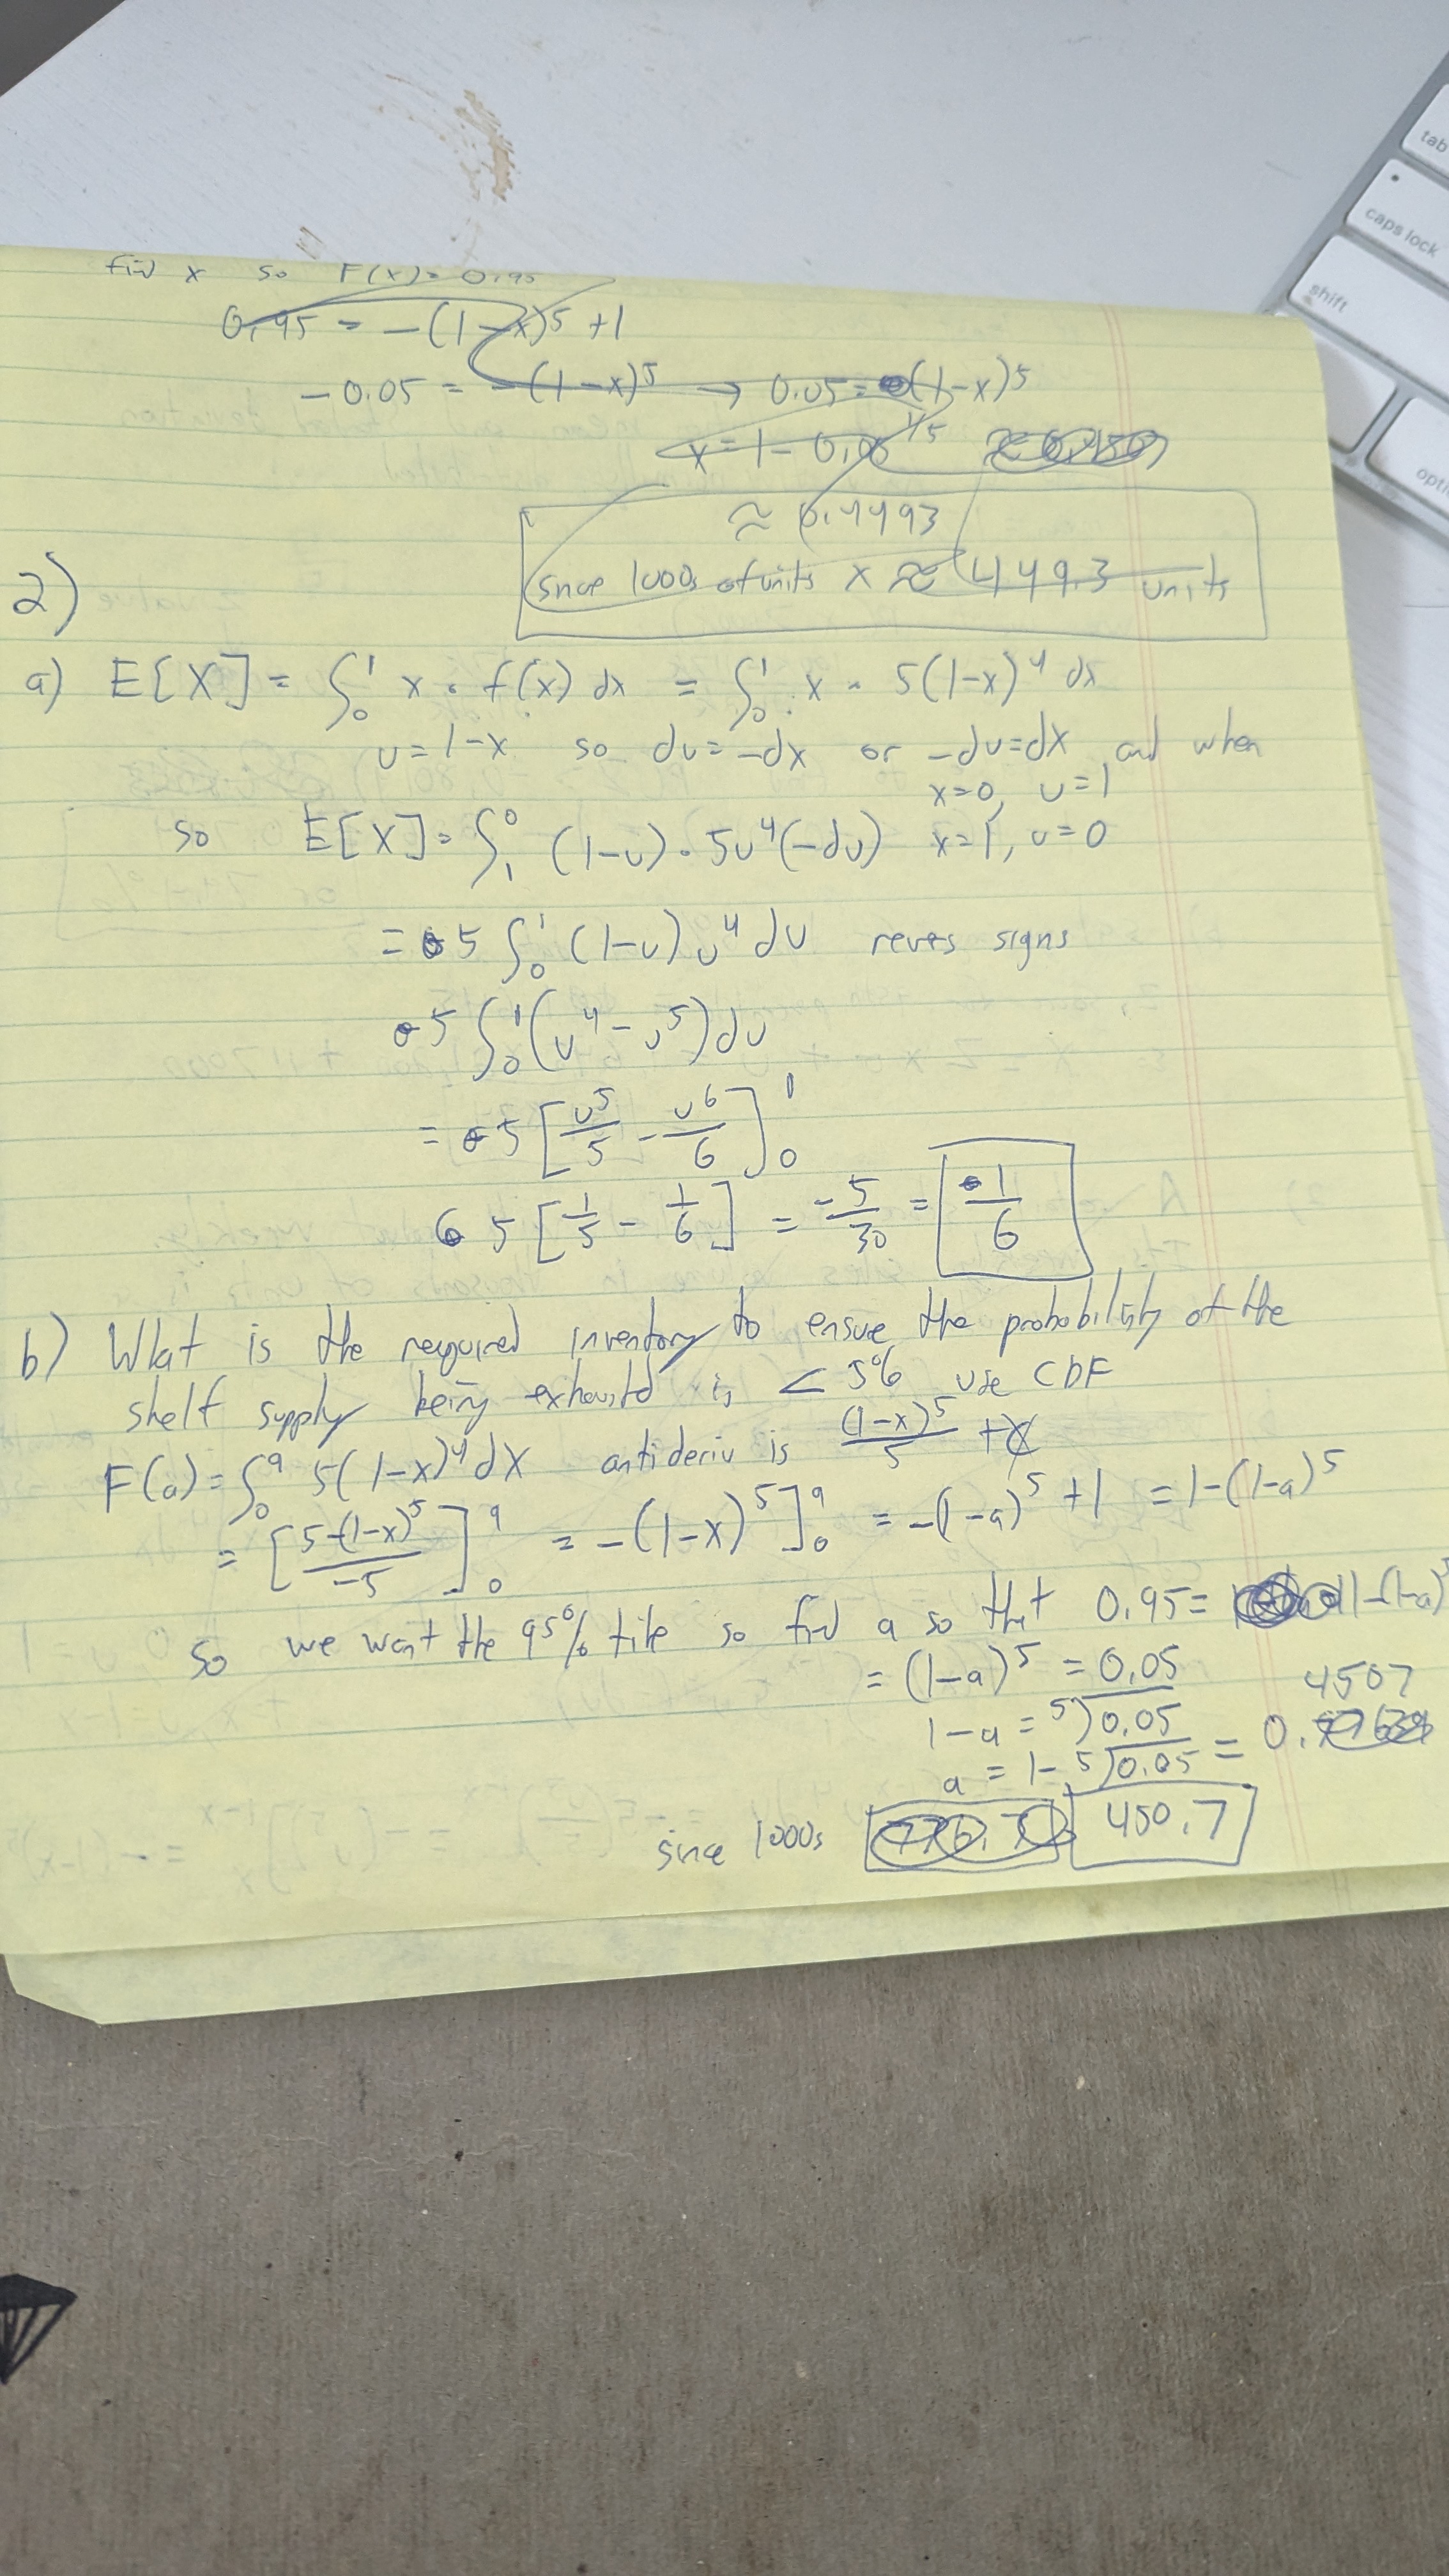 find x so F(x) = 0.95
0.95 = -(1-x)^5 + 1
-0.05 = -(1-x)^5 → 0.05 = (1-x)^5
x = 1 - 0.05^{1/5}
≈ 0.4493
since 1000s of units x ≈ 449.3 units
2)
a) E[X] = ∫_0^1 x · f(x) dx = ∫_0^1 x · 5(1-x)^4 dx
u = 1-x so du = -dx or -du = dx and when
x=0, u=1
so E[X] = ∫_1^0 (1-u) · 5u^4 (-du) x=1, u=0
= 5 ∫_0^1 (1-u) u^4 du revers signs
5 ∫_0^1 (u^4 - u^5) du
= 5 [u^5/5 - u^6/6]_0^1
5 [1/5 - 1/6] = -5/30 = 1/6
b) What is the required inventory to ensure the probability of the
shelf supply being is < 5% use CDF
F(a) = ∫_0^a 5(1-x)^4 dx antideriv is (1-x)^5/5 + C
= [5-(1-x)^5/-5]_0^a = -(1-x)^5]_0^a = -(1-a)^5 + 1 = 1-(1-a)^5
So we want the 95%tile so find a so that 0.95 = 1-(1-a)^5
= (1-a)^5 = 0.05
1-a = 5√0.05 4507
a = 1 - 5√0.05 = 0.
since 1000s 450.7
tab
caps lock
shift
opti